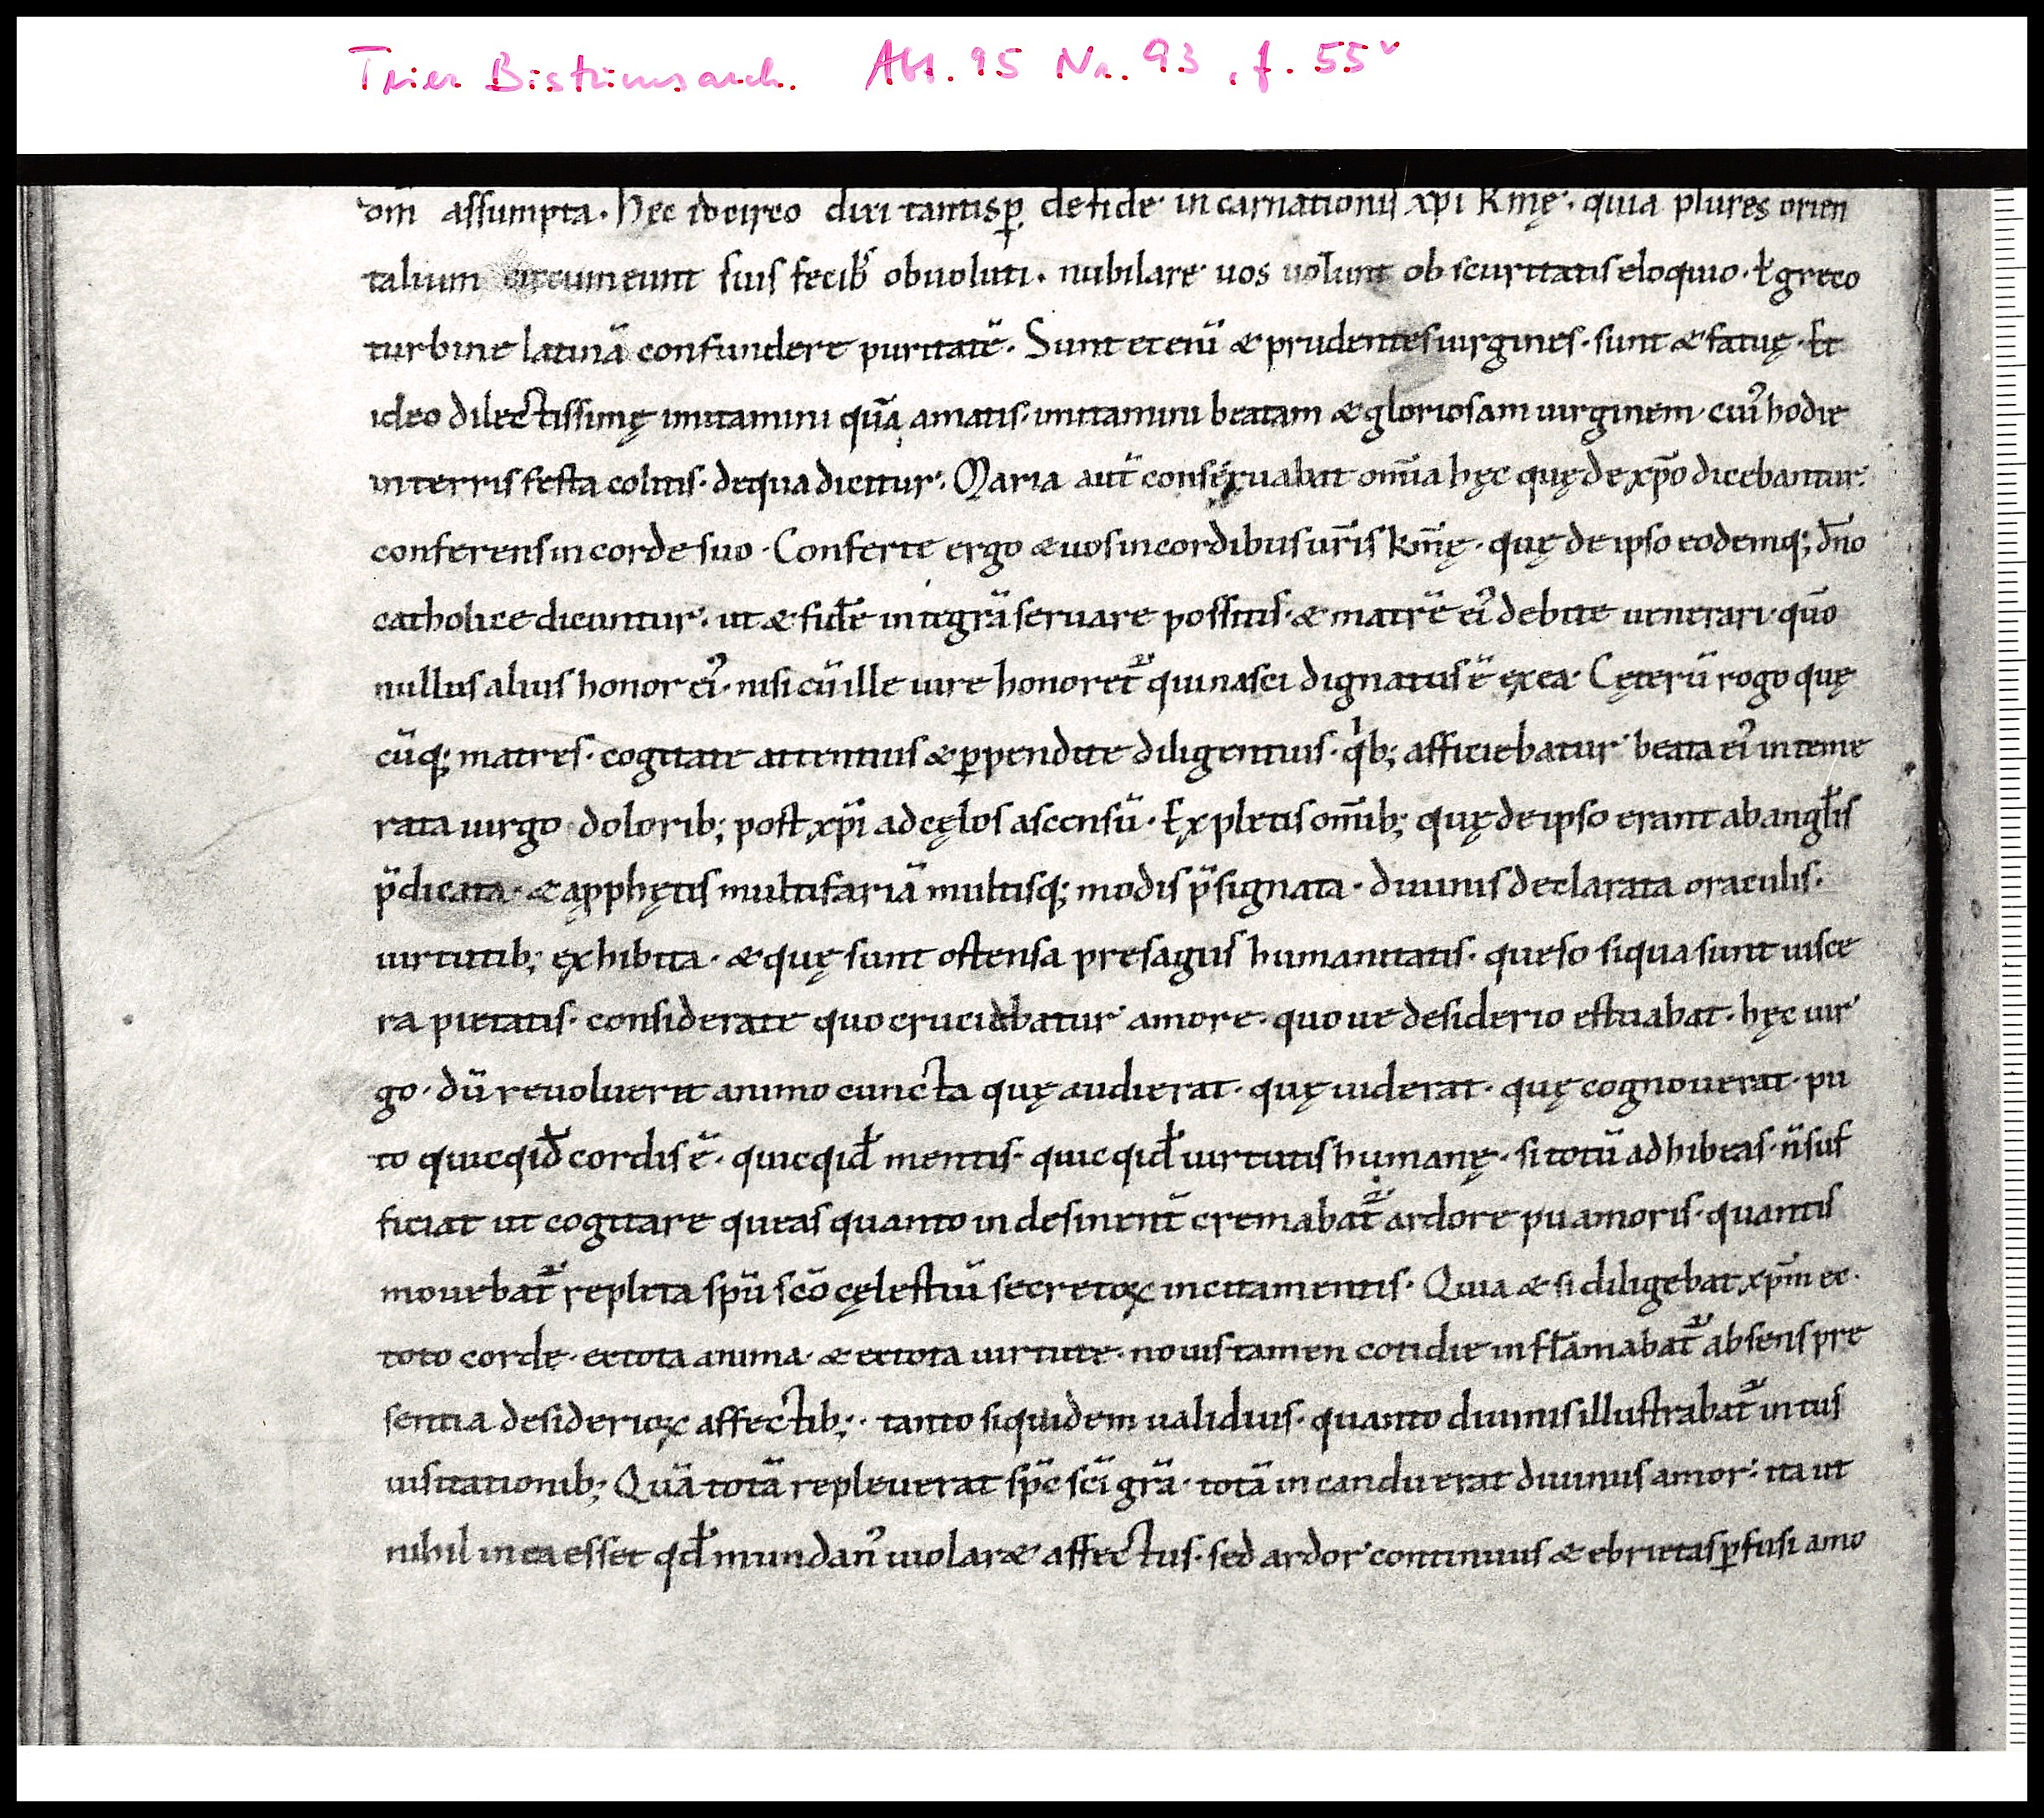 Trier Bistumsarch. Abt. 95 Nr. 93, f. 55v
om̄ assumpta. hęc idcirco dixi tantisꝑ de fide incarnationis xp̄i k̄mę. quia plures orien
talium circumeunt suis fecib; obuoluti. nubilare uos uolunt obscuritatis eloquio. ł greco
turbine latinā confundere puritatē. Sunt eteni͞u & prudentes uirgines. sunt & fatuę. Et
ideo dilectissimę imitamini quā amatis. imitamini beatam & gloriosam uirginem. cui᷒ hodie
in terris festa colitis. de qua dicitur. Maria aut̄ conseruabat om̄ia hęc quę de xp̄o dicebantur.
conferens in corde suo. Conferte ergo & uos in cordibus ur̄is k̄mę. quę de ipso eodemq; dn̄o
catholice dicuntur. ut & fidē integrā seruare possitis. & matrē ei᷒ debite uenerari. quō
nullus alius honor ei᷒. nisi cū ille iure honoret᷑ qui nasci dignatus ē ex ea. Cęterū rogo quę
cūq; matres. cogitate attentius & ꝑpendite diligentius. qͥb; afficiebatur beata ei᷒ inteme
rata uirgo dolorib; post xp̄i ad cęlos ascensū. Expletis om̄ib; quę de ipso erant ab angl̄is
p̄dicata. & a ꝓphętis multifariā multisq; modis p̄signata. diuinis declarata oraculis.
uirtutib; exhibita. & quę sunt ostensa presagiis humanitatis. queso siqua sunt uisce
ra pietatis. considerate quo cruciabatur amore. quoue desiderio estuabat. hęc uir
go. dū reuoluerit animo cuncta quę audierat. quę uiderat. quę cognouerat. pu
to quicqid̄ cordis ē. quicqid̄ mentis. quicqid̄ uirtutis humanę. si totū adhibeas. n̄ suf
ficiat ut cogitare queas quanto indesinent̄ cremabat᷑ ardore pii amoris. quantis
mouebat᷑ repleta sp̄u scō cęlestiū secretoꝝ incitamentis. Quia & si diligebat xp̄m ex
toto corde. ex tota anima. & ex tota uirtute. nouis tamen cotidie inflāmabat᷑ absens pre
sentia desiderioꝝ affectib;. tanto siquidem ualidius. quanto diuinis illustrabat᷑ intus
uisitationib; Quā totā repleuerat sp̄c sc̄i gr̄a. totā incanduerat diuinus amor. ita ut
nihil in ea esset qd̄ mundan᷒ uiolar& affectus. sed ardor continuus & ebrietas ꝑfusi amo